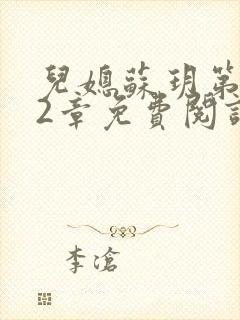 兒媳蘇玥第
2章免費閱讀
李滄